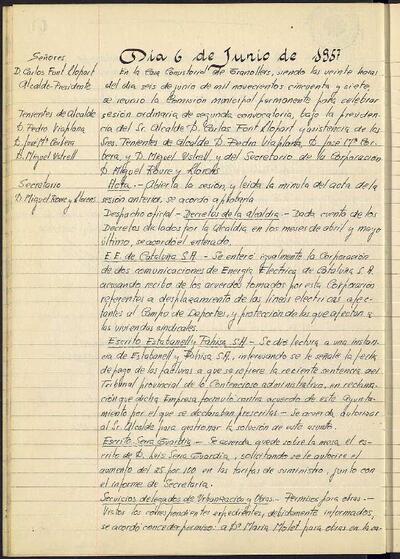 Señores
D. Carlos Font Llopart
Alcalde-Presidente
Tenentes de Alcalde
D. Pedro Viaplana
D. José Mª Corbera
D. Miguel Ustrell
Secretario
D. Miguel Roure y Llorens
Dia 6 de Junio de 1957
En la Casa Consistorial de Granollers, siendo las veinte horas
del dia seis de junio de mil novecientos cincuenta y siete,
se reunio la Comisión municipal permanente para celebrar
sesión ordinaria de segunda convocatoria, bajo la presiden-
cia del Sr. Alcalde D. Carlos Font Llopart y asistencia de los
Srs. Tenentes de Alcalde D. Pedro Viaplana, D. José Mª Cor-
bera, y D. Miguel Ustrell, y del Secretario de la Corporación
D. Miguel Roure y Llorens
Acta.- Abierta la sesión, y leida la minuta del acta de la
sesión anterior, se acordo aprobarla
Despacho oficial - Decretos de la Alcaldia - Dada cuenta de los
Decretos dictados por la Alcaldia, en los meses de abril y mayo
último, se acordo el enterado.
E.E. de Cataluña S.A. - Se enteró igualmente la Corporación
de dos comunicaciones de Energia Electrica de Cataluña S.A.
acusando recibo de los acuerdos tomados por esta Corporación
referentes a desplazamiento de las lineas electricas afec-
tantes al Campo de Deportes, y protección de las que afectan a
las viviendas sindicales.
Escrito Estabanell y Pahisa S.A - Se dió lectura a una instan-
cia de Estabanell y Pahisa S.A., interesando se le señale la fecha
de pago de las facturas a que se refiere la reciente sentencia del
Tribunal provincial de lo Contencioso administrativo, en reclama-
ción que dicha Empresa formuló contra acuerdo de este Ayunta-
miento por el que se declaraban prescritas - Se acuerda autorizar
al Sr. Alcalde para gestionar la solución de este asunto.
Escrito Serra Guardia - Se acuerda quede sobre la mesa el es-
crito de D. Luis Serra Guardia, solicitando se le autorice el
aumento del 25 por 100 en las tarifas de suministro, junto con
el informe de Secretaria.
Servicios delegados de Urbanización y Obras - Permisos para obras.-
Vistos los correspondientes expedientes, debidamente informados,
se acordo conceder permiso a Dª Maria Molet para obras en la ca-